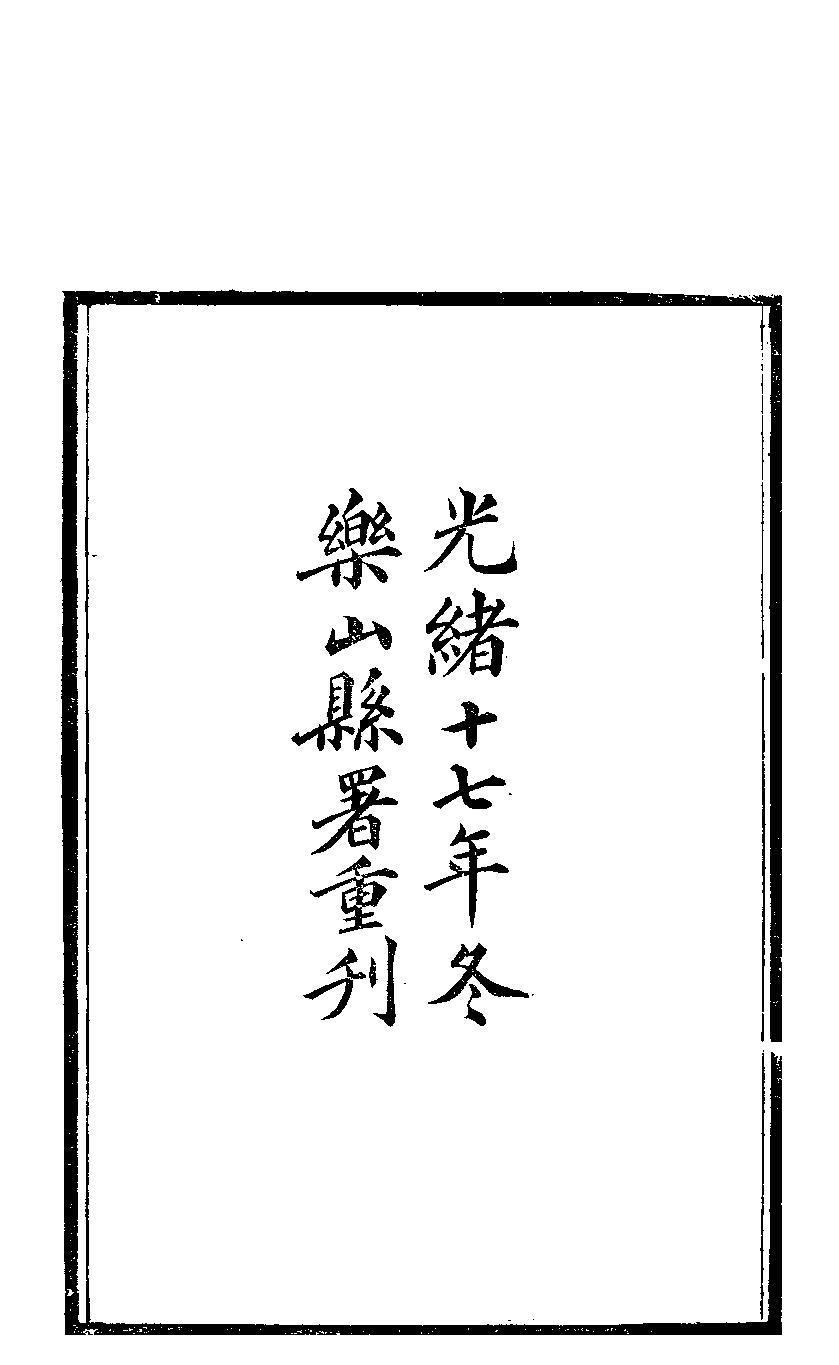 光緒十七年冬
樂山縣署重刋